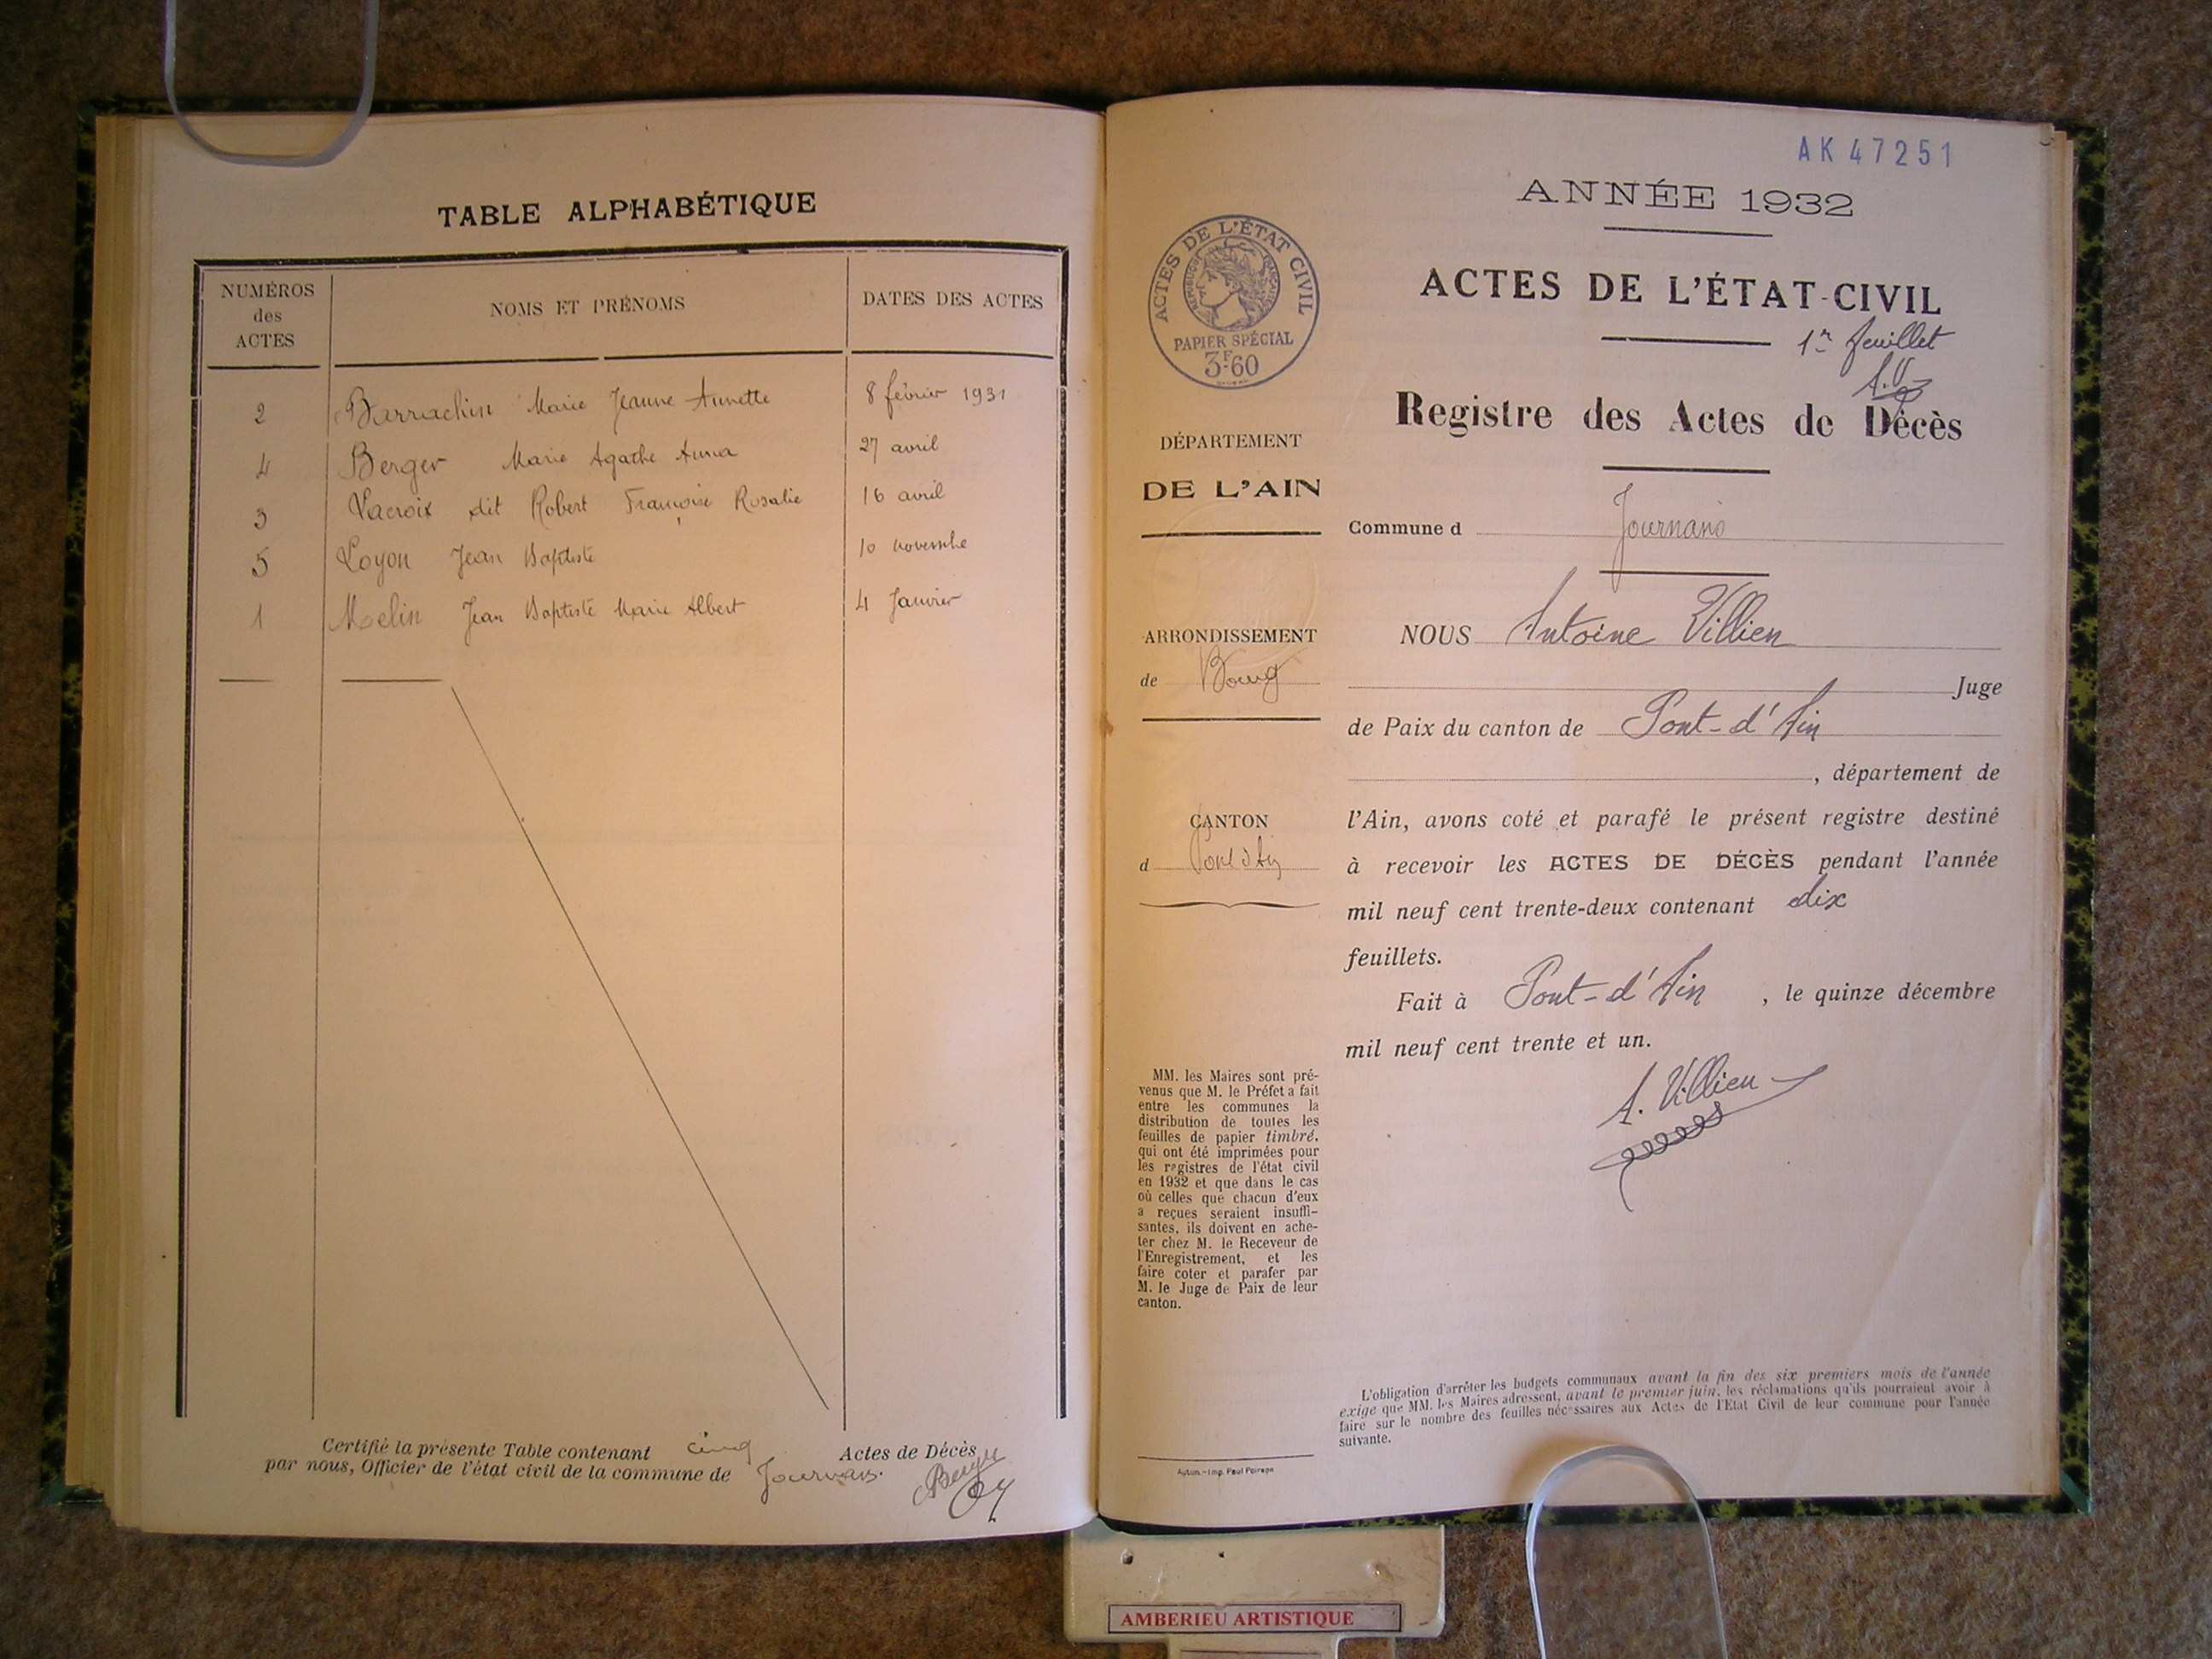 TABLE ALPHABÉTIQUE
NUMÉROS des ACTES
NOMS ET PRÉNOMS
DATES DES ACTES
2 Barrachin Marie Jeanne Annette 8 février 1931
4 Berger Marie Agathe Anna 27 avril
3 Lacroix dit Robert Françoise Rosalie 16 avril
5 Loyon Jean Baptiste 10 novembre
1 Melin Jean Baptiste Marie Albert 4 Janvier
Certifié la présente Table contenant cinq Actes de Décès
par nous, Officier de l'état civil de la commune de Journans.
AK 47251
ANNÉE 1932
ACTES DE L'ÉTAT CIVIL
RÉPUBLIQUE FRANÇAISE
PAPIER SPÉCIAL
3F60
ACTES DE L'ÉTAT-CIVIL
1er feuillet
A.V
Registre des Actes de Décès
DÉPARTEMENT
DE L'AIN
Commune d Journans
ARRONDISSEMENT
de Bourg
NOUS Antoine Villien
Juge
de Paix du canton de Pont-d'Ain
, département de
CANTON
d Pont d'Ain
l'Ain, avons coté et parafé le présent registre destiné
à recevoir les ACTES DE DÉCÈS pendant l'année
mil neuf cent trente-deux contenant dix
feuillets.
Fait à Pont-d'Ain , le quinze décembre
mil neuf cent trente et un.
A. Villien
MM. les Maires sont pré-
venus que M. le Préfet a fait
entre les communes la
distribution de toutes les
feuilles de papier timbré,
qui ont été imprimées pour
les registres de l'état civil
en 1932 et que dans le cas
où celles que chacun d'eux
a reçues seraient insuffi-
santes, ils doivent en ache-
ter chez M. le Receveur de
l'Enregistrement, et les
faire coter et parafer par
M. le Juge de Paix de leur
canton.
L'obligation d'arrêter les budgets communaux avant la fin des six premiers mois de l'année
exige que MM. les Maires adressent, avant le premier juin, les réclamations qu'ils pourraient avoir à
faire sur le nombre des feuilles nécessaires aux Actes de l'Etat Civil de leur commune pour l'année
suivante.
Autun.-Imp. Paul Poirson
AMBERIEU ARTISTIQUE